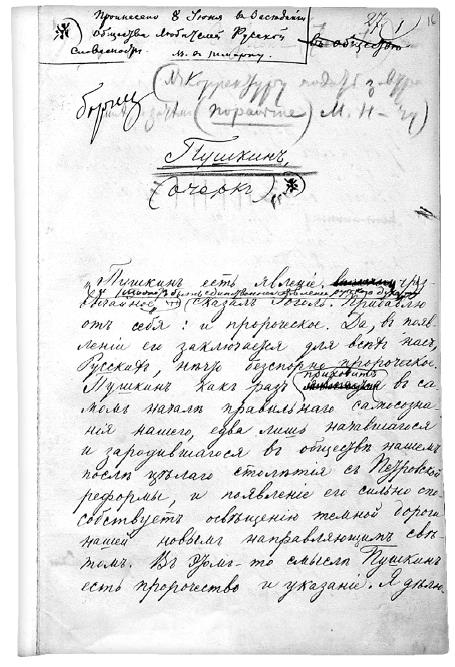 Произнесено 8 Июня въ Заседаніи
Общества Любителей Русской
Словесности.
27 1 16
въ обществѣ
Пушкинъ,
(очеркъ)
„Пушкинъ есть явленіе чрез
вычайное и, можетъ быть, единственное явленіе русскаго духа,
сказалъ Гоголь. Прибавлю
отъ себя: и пророческое. Да, въ появ
леніи его заключается для всѣхъ насъ,
Русскихъ, нѣчто безспорно пророческое.
Пушкинъ какъ разъ приходитъ въ са
момъ началѣ правильнаго самосозна
нія нашего, едва лишь начавшагося
и зародившагося въ обществѣ нашемъ
послѣ цѣлаго столѣтія съ Петровской
реформы, и появленіе его сильно спо
собствуетъ освѣщенію темной дороги
нашей новымъ направляющимъ свѣ
томъ. Въ этомъ-то смыслѣ Пушкинъ
есть пророчество и указаніе. Я дѣлю